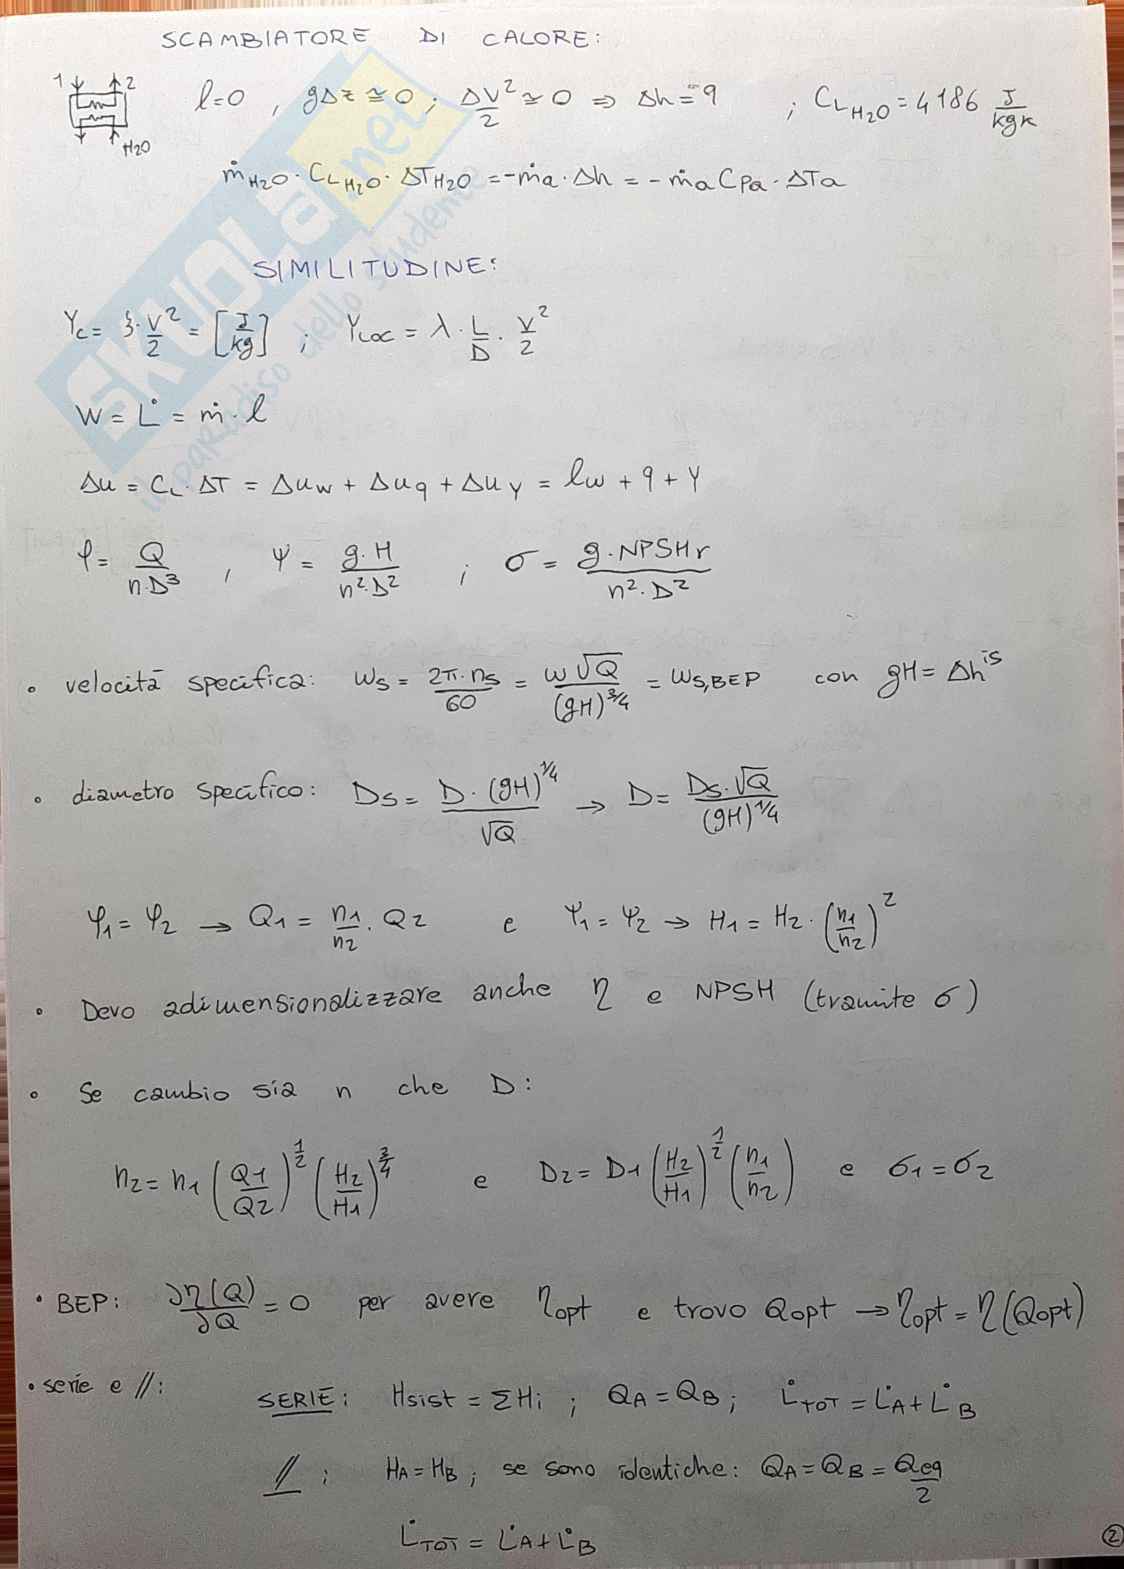 SCAMBIATORE DI CALORE:
1 2 H2O
l=0 , gΔz ≅ 0 ; ΔV²/2 ≅ 0 ⇒ Δh = q ; C_L H2O = 4186 J/kgK
ṁ_H2O · C_L H2O · ΔT_H2O = -ṁa · Δh = -ṁa Cpa · ΔTa
SKUOLA.net
il paradiso dello studente
SIMILITUDINE:
Yc = ξ · V²/2 = [J/kg] ; Yloc = λ · L/D · V²/2
W = L̇ = ṁ · l
Δu = C_L · ΔT = Δu_w + Δu_q + Δu_y = l_w + q + Y
φ = Q/(n·D³) , ψ = g·H/(n²·D²) ; σ = g·NPSHr/(n²·D²)
• velocità specifica: ωs = 2π·ns/60 = ω√Q/(gH)^3/4 = ωs,BEP con gH = Δh^is
• diametro specifico: Ds = D·(gH)^1/4/√Q → D = Ds·√Q/(gH)^1/4
φ1 = φ2 → Q1 = n1/n2 · Q2 e ψ1 = ψ2 → H1 = H2 · (n1/n2)²
• Devo adimensionalizzare anche η e NPSH (tramite σ)
• Se cambio sia n che D:
n2 = n1 (Q1/Q2)^1/2 (H2/H1)^3/4 e D2 = D1 (H2/H1)^1/2 (n1/n2) e σ1 = σ2
• BEP: ∂η(Q)/∂Q = 0 per avere ηopt e trovo Qopt → ηopt = η(Qopt)
• serie e //:
SERIE: Hsist = ΣHi ; QA = QB ; L̇TOT = L̇A + L̇B
// : HA = HB ; se sono identiche: QA = QB = Qeq/2
L̇TOT = L̇A + L̇B
2